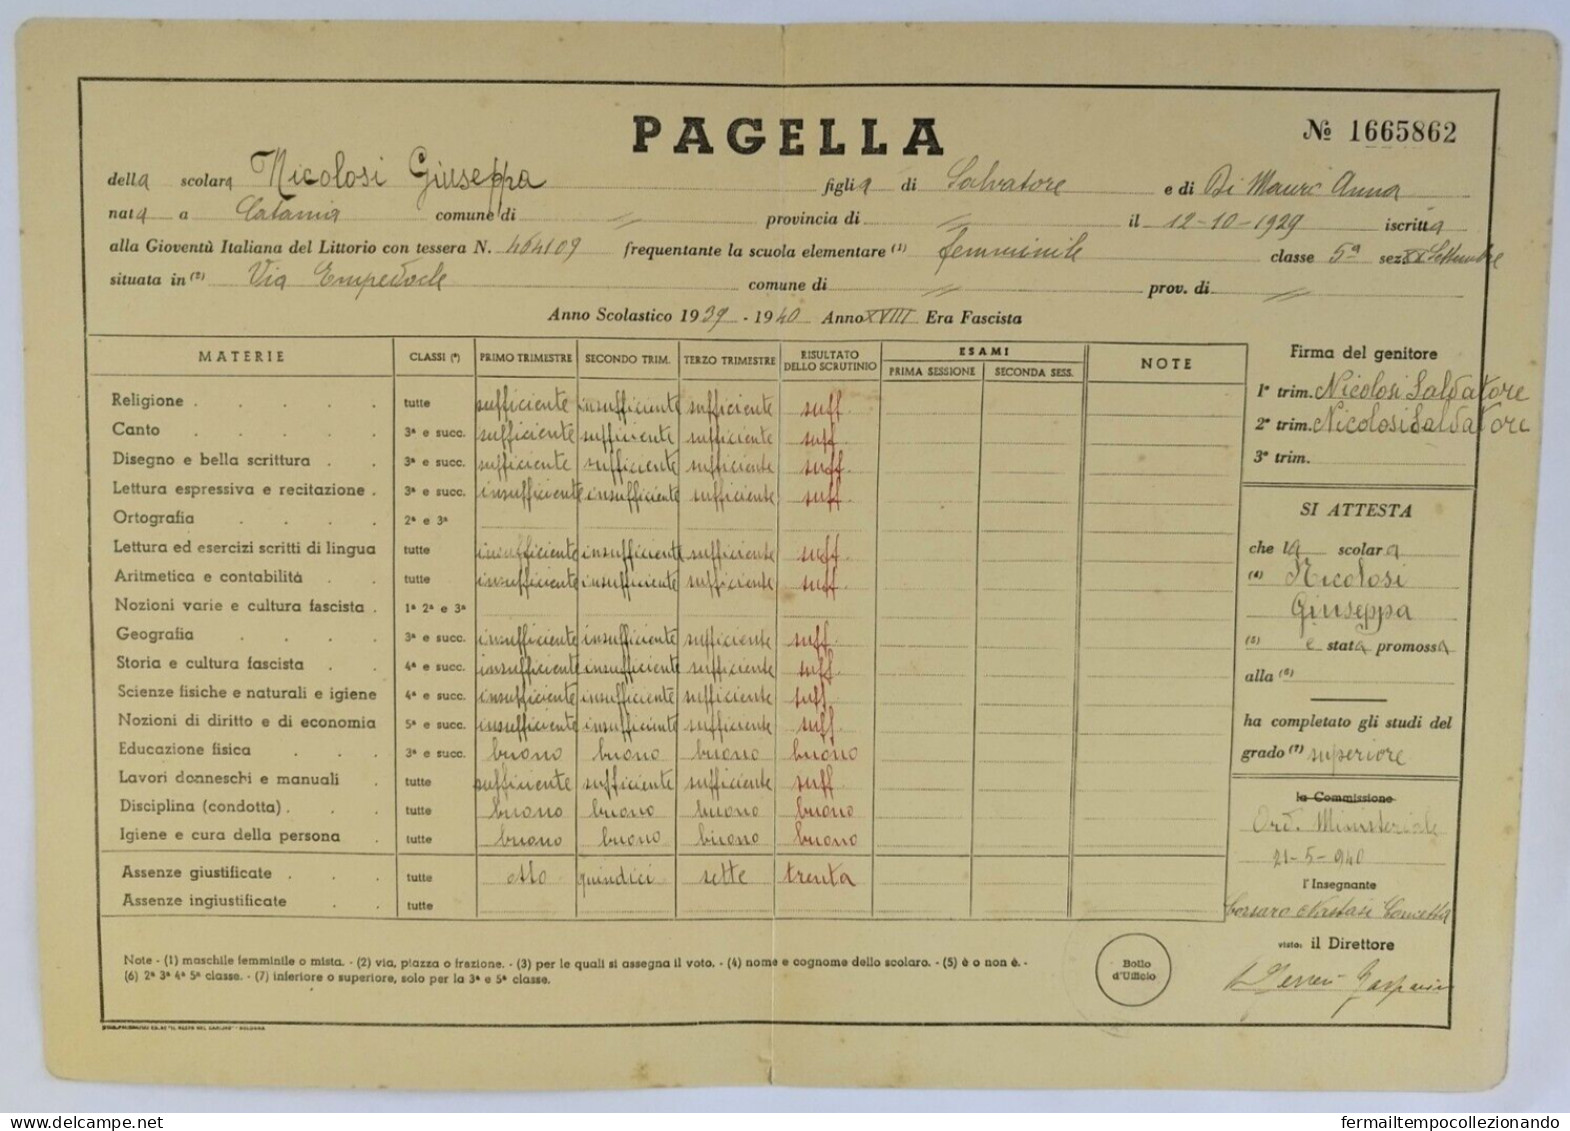 PAGELLA
№ 1665862
della scolara Nicolosi Giuseppa figlia di Salvatore e di Di Mauro Anna
nata a Catania comune di // provincia di // il 12-10-1929 iscritta
alla Gioventù Italiana del Littorio con tessera N. 464109 frequentante la scuola elementare (1) femminile classe 5ª sez. XX Settembre
situata in (2) Via Empedocle comune di // prov. di //
Anno Scolastico 1939 - 1940 Anno XVIII Era Fascista
MATERIE CLASSI (*) PRIMO TRIMESTRE SECONDO TRIM. TERZO TRIMESTRE RISULTATO DELLO SCRUTINIO ESAMI PRIMA SESSIONE SECONDA SESS. NOTE
Religione . . . . . tutte sufficiente insufficiente sufficiente suff.
Canto . . . . . 3ª e succ. sufficiente sufficiente sufficiente suff.
Disegno e bella scrittura . . 3ª e succ. sufficiente sufficiente sufficiente suff
Lettura espressiva e recitazione . 3ª e succ. insufficiente insufficiente sufficiente suff.
Ortografia . . . . 2ª e 3ª
Lettura ed esercizi scritti di lingua tutte insufficiente insufficiente sufficiente suff.
Aritmetica e contabilità . . tutte insufficiente insufficiente sufficiente suff.
Nozioni varie e cultura fascista . 1ª 2ª e 3ª
Geografia . . . . 3ª e succ. insufficiente insufficiente sufficiente suff.
Storia e cultura fascista . . 4ª e succ. insufficiente insufficiente sufficiente suff.
Scienze fisiche e naturali e igiene 4ª e succ. insufficiente insufficiente sufficiente suff.
Nozioni di diritto e di economia 5ª e succ. insufficiente insufficiente sufficiente suff.
Educazione fisica . . . 3ª e succ. buono buono buono buono
Lavori donneschi e manuali . tutte sufficiente sufficiente sufficiente suff
Disciplina (condotta) . . . tutte buono buono buono buono
Igiene e cura della persona . tutte buono buono buono buono
Assenze giustificate . . . tutte otto quindici sette trenta
Assenze ingiustificate . . tutte
Firma del genitore
1º trim. Nicolosi Salvatore
2º trim. Nicolosi Salvatore
3º trim.
SI ATTESTA
che la scolara
(4) Nicolosi
Giuseppa
(5) è stata promossa
alla (6)
ha completato gli studi del
grado (7) superiore
la Commissione
Ord. Ministeriale
21-5-940
l'Insegnante
Corsaro Nastasi Concetta
visto: il Direttore
Bollo
d'Ufficio
Note - (1) maschile femminile o mista. - (2) via, piazza o frazione. - (3) per le quali si assegna il voto. - (4) nome e cognome dello scolaro. - (5) è o non è. -
(6) 2ª 3ª 4ª 5ª classe. - (7) inferiore o superiore, solo per la 3ª e 5ª classe.
www.delcampe.net
fermailtempocollezionando